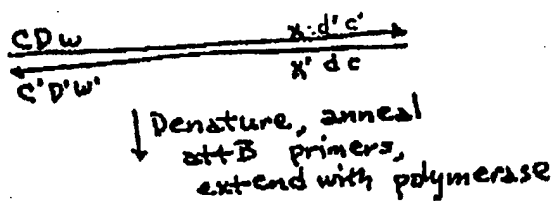 CDw x d' c'
C'D'W' x' d c
Denature, anneal
attB primers,
extend with polymerase